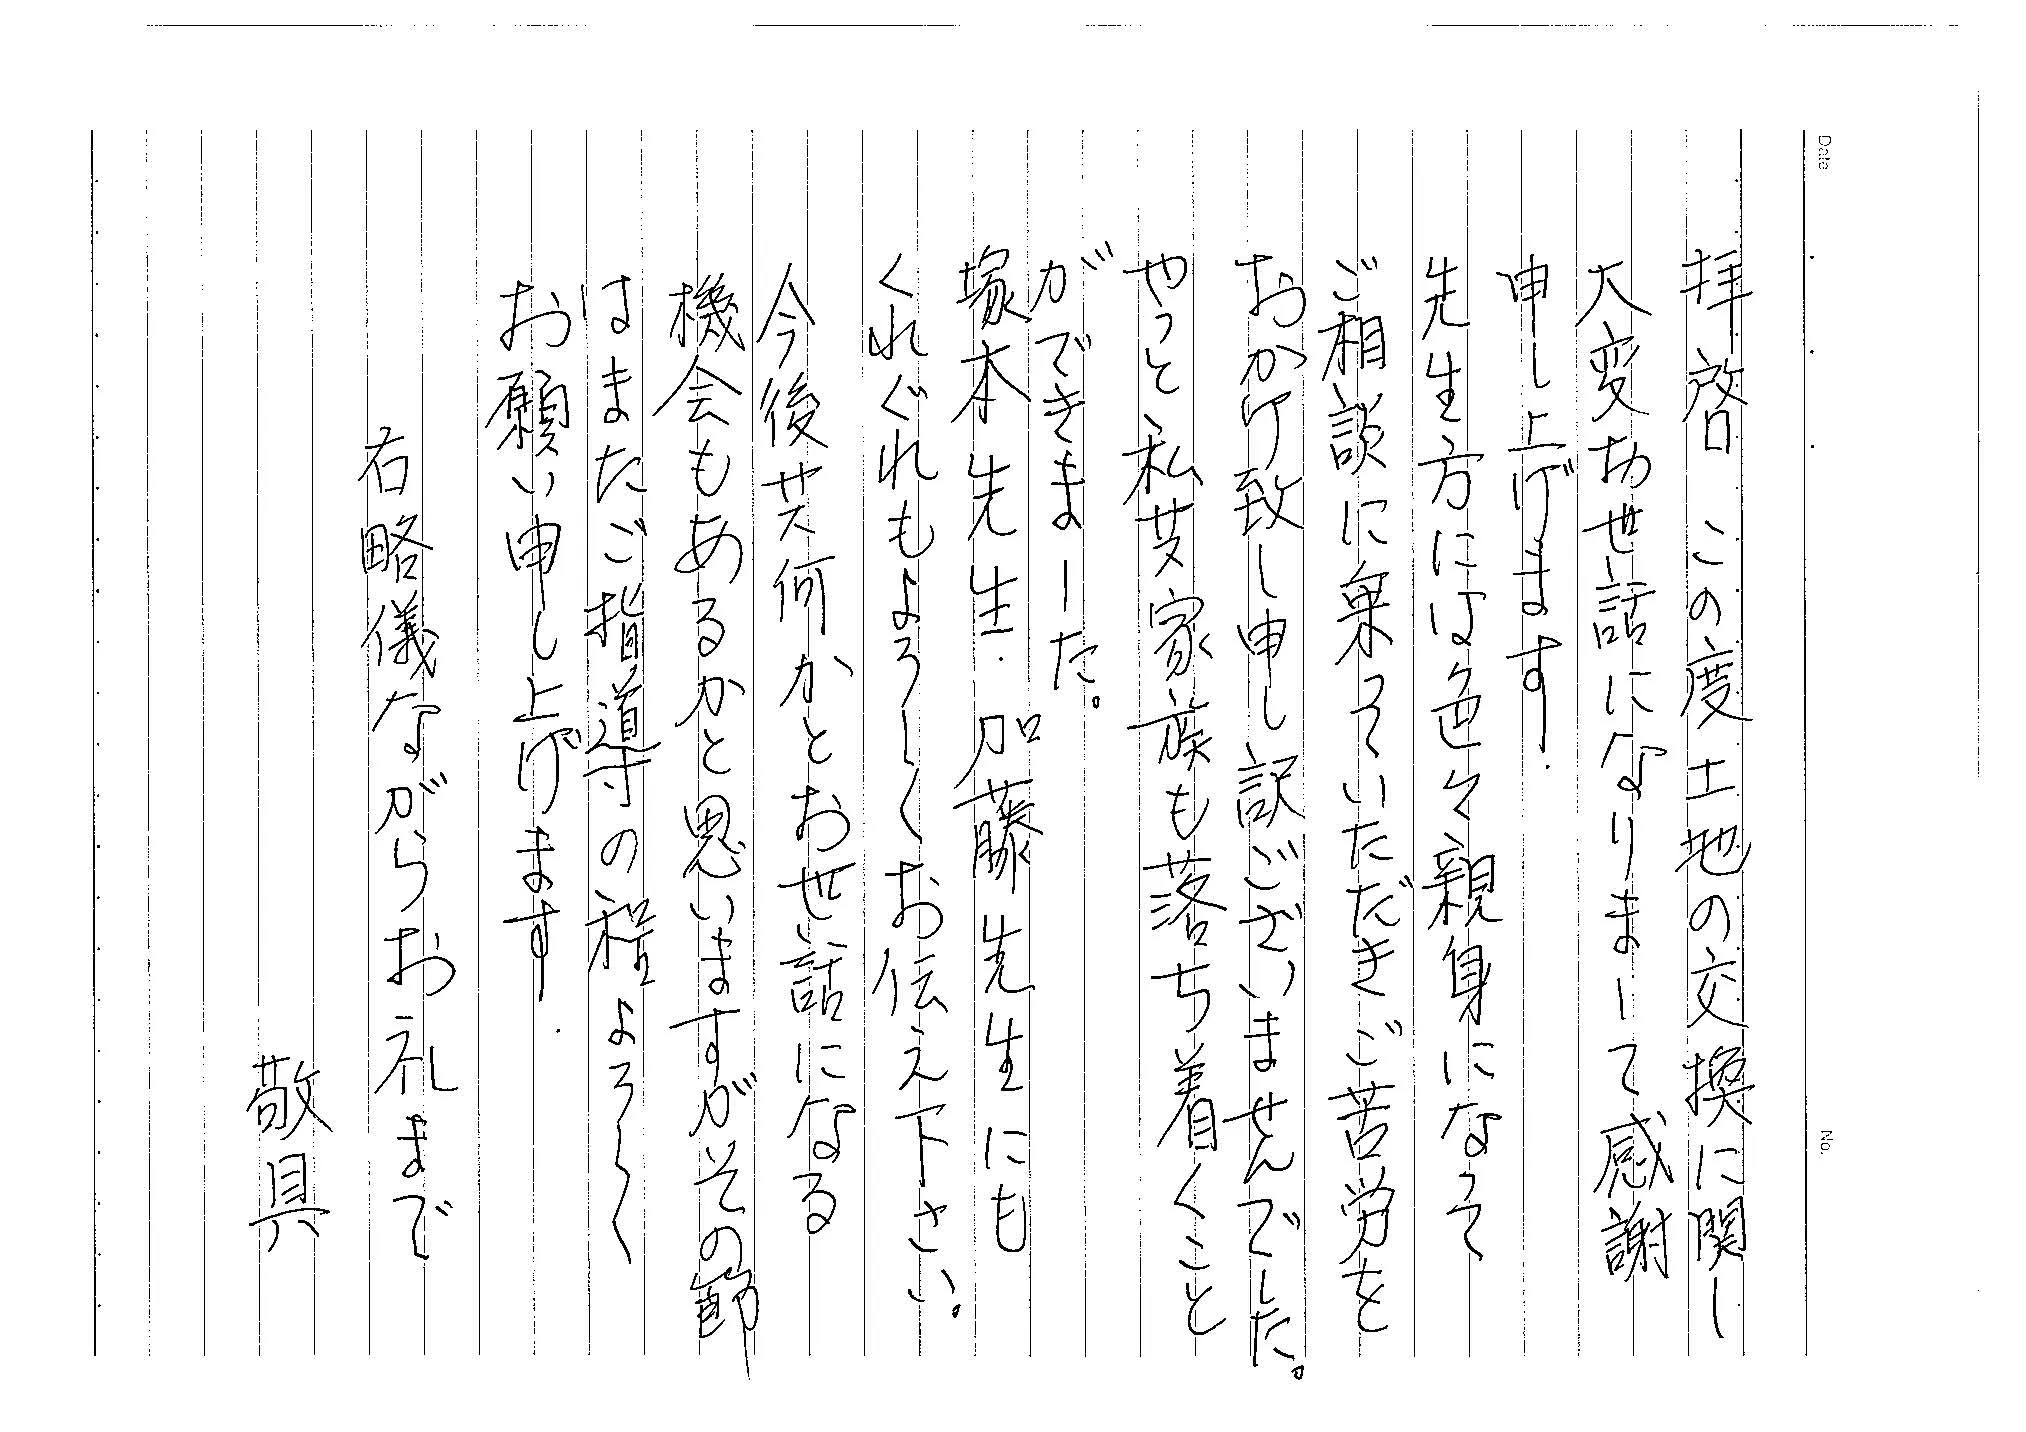 Date
No.
拝啓 この度土地の交換に関し
大変お世話になりまして感謝
申し上げます.
先生方には色々親身になって
ご相談に乗っていただきご苦労を
おかけ致し申し訳ございませんでした。
やっと私共家族も落ち着くこと
ができました。
塚本先生.加藤先生にも
くれぐれもよろしくお伝え下さい。
今後共何かとお世話になる
機会もあるかと思いますがその節
はまたご指導の程よろしく
お願い申し上げます.
右略儀ながらお礼まで
敬具